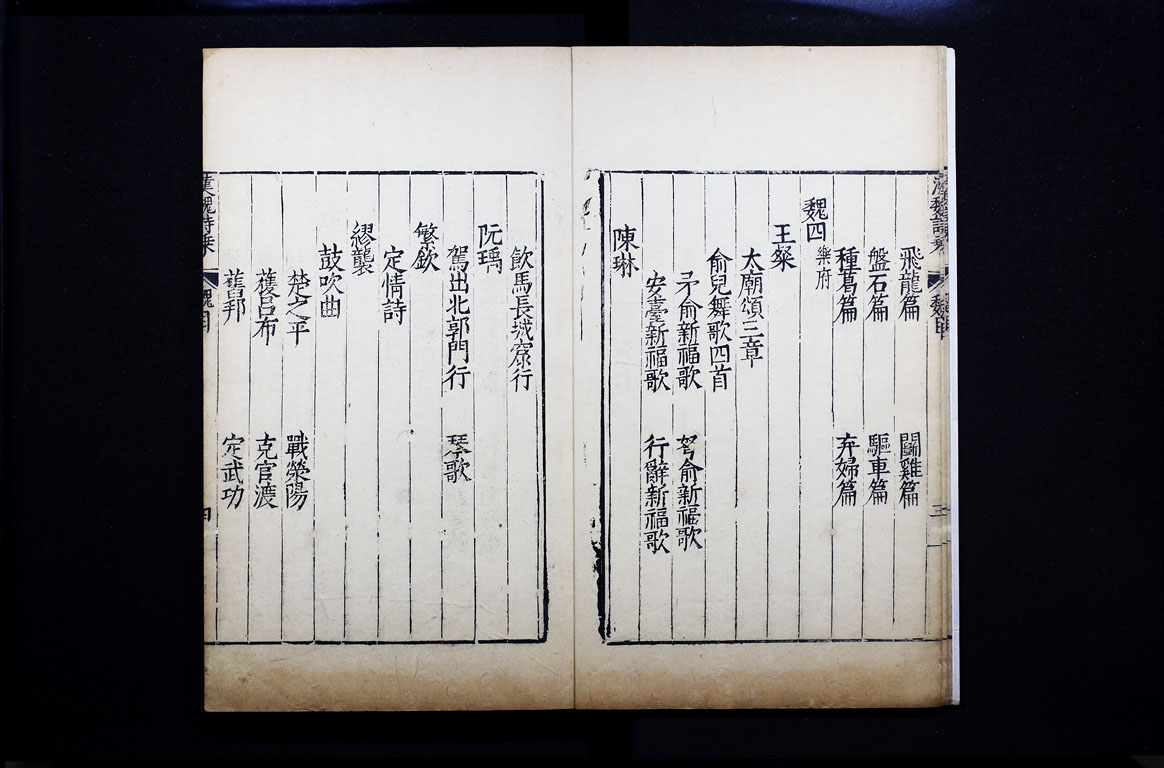 飛龍篇 鬬雞篇
盤石篇 驅車篇
種葛篇 弃婦篇
魏四 樂府
王粲
太廟頌三章
俞兒舞歌四首
矛俞新福歌 弩俞新福歌
安臺新福歌 行辭新福歌
陳琳
飲馬長城窟行
阮瑀
駕出北郭門行 琴歌
繁欽
定情詩
繆襲
鼓吹曲
楚之平 戰滎陽
獲呂布 克官渡
舊邦 定武功
漢魏詩乘 魏目